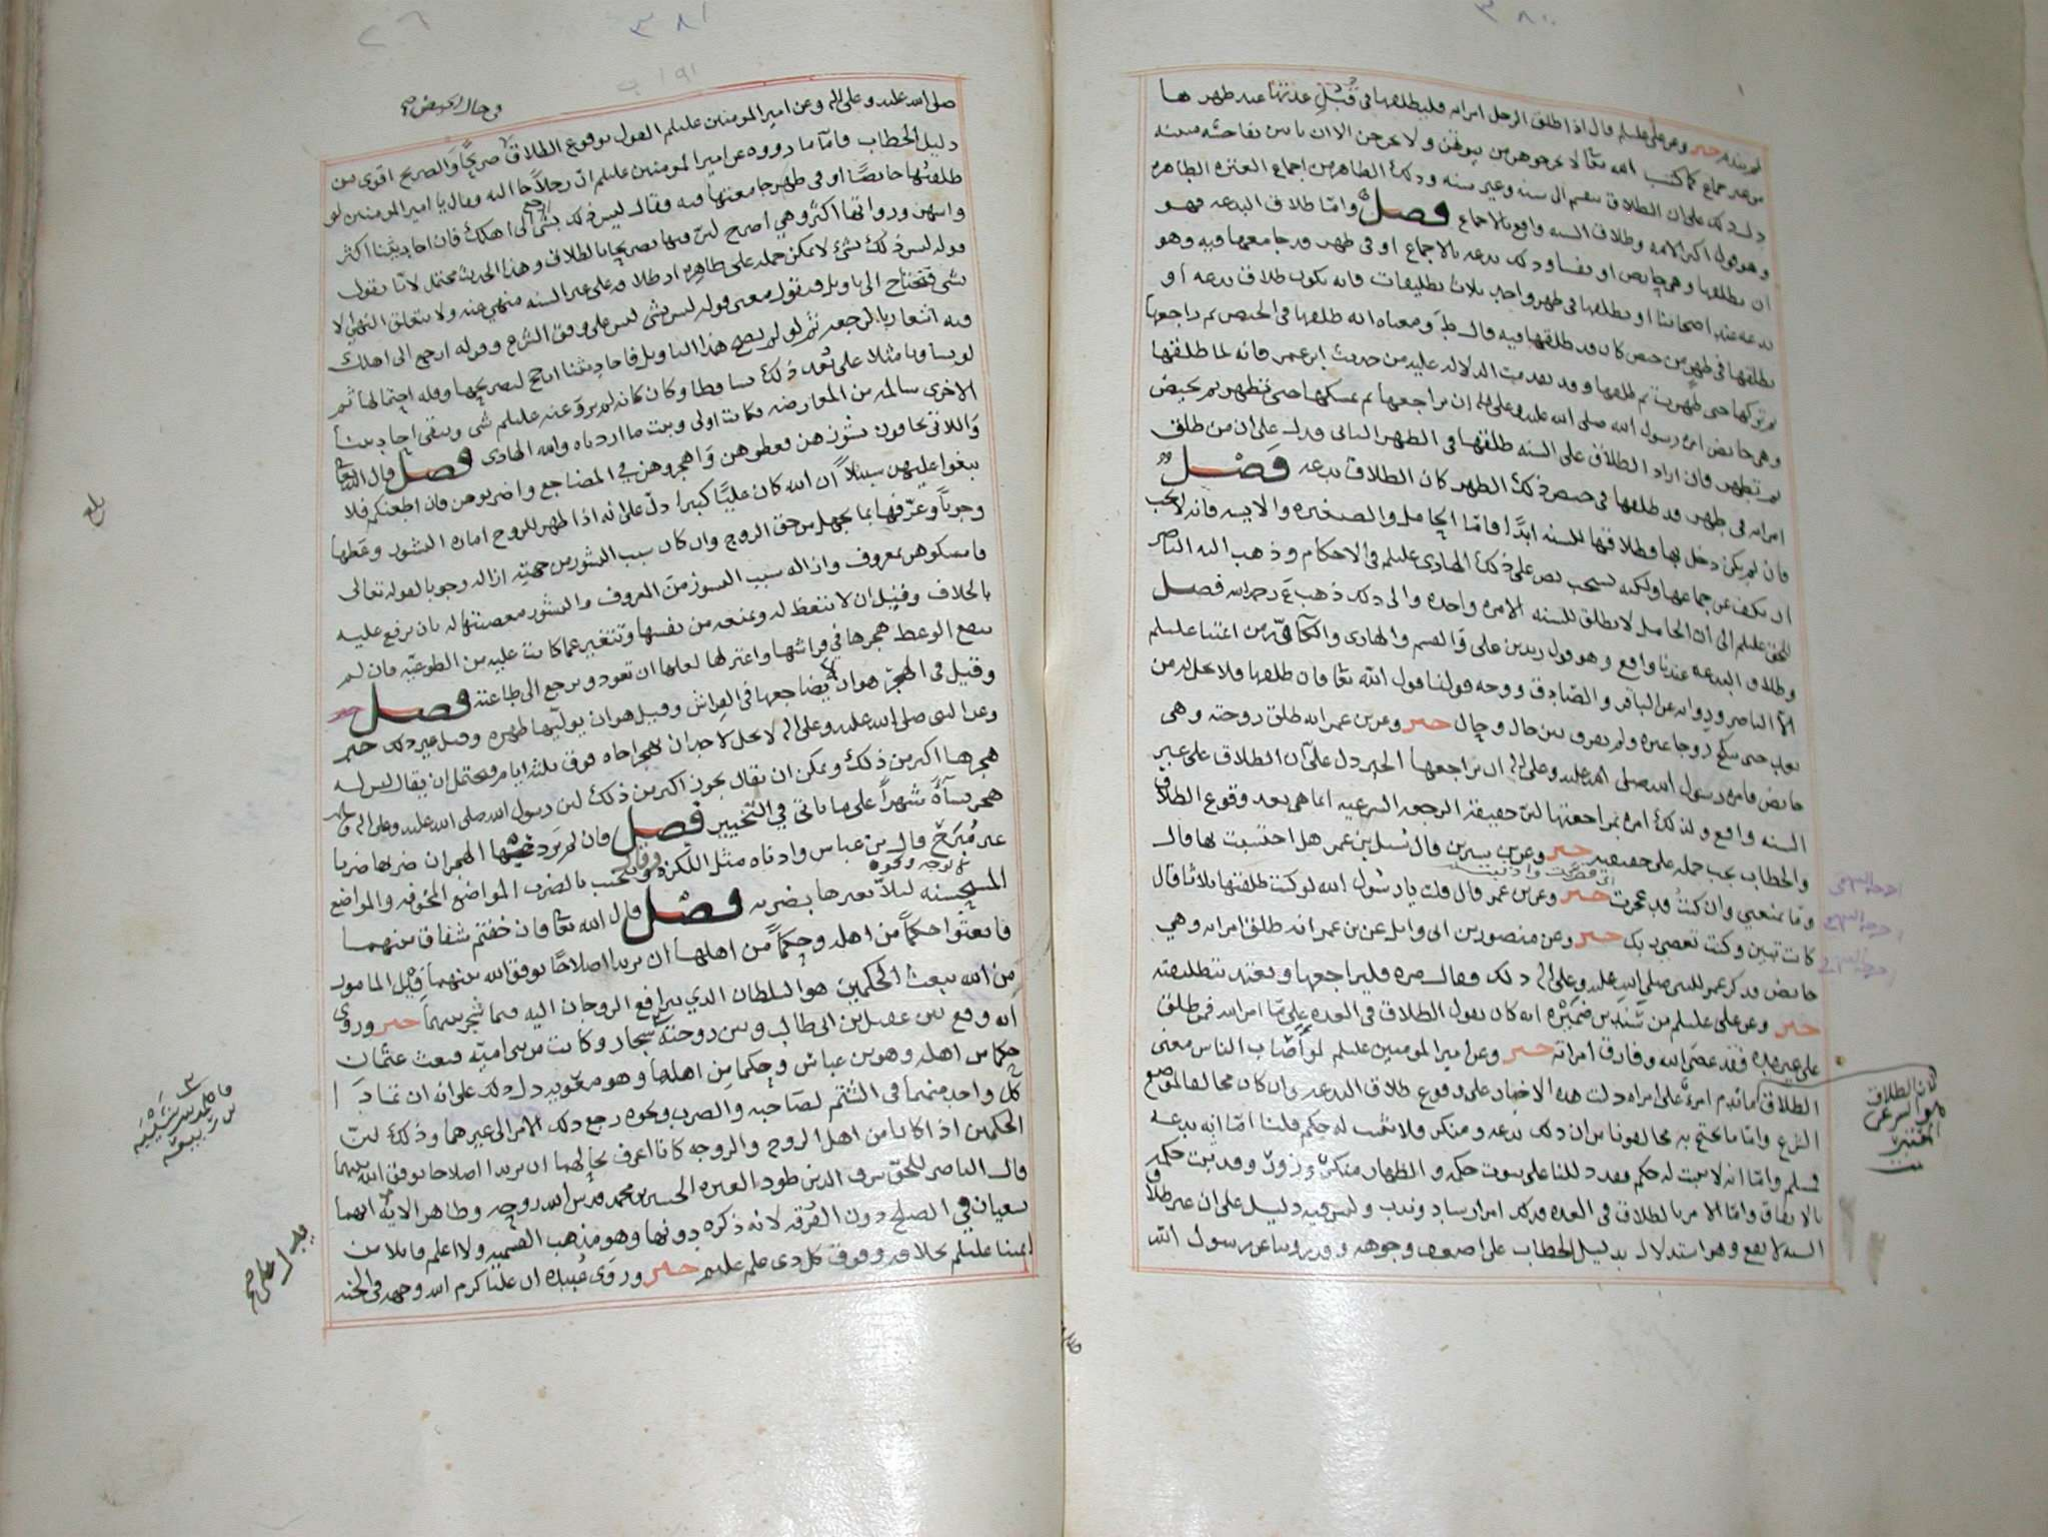 ٣٨٠
خبر وعن علي عليلم قال اذا طلق الرجل امراته فليطلقها في قبل عدتها عند طهرها
من غير جماع كما كتب الله تعا لا تخرجوهن من بيوتهن ولا يخرجن الا ان ياتين بفاحشه مبينه
دل ذلك على ان الطلاق ينقسم الى سنه وغير سنه وذلك الظاهر من اجماع العتره الطاهره
وهو قول اكثر الامه وطلاق السنه واقع بالاجماع فصل واما طلاق البدعه فهو
ان يطلقها وهي حايض او نفسا وذلك بدعه بالاجماع او في طهر قد جامعها فيه وهو
بدعه عند اصحابنا او يطلقها في طهر واحد ثلاث تطليقات فانه يكون طلاق بدعه او
يطلقها في طهر من حيض كان قد طلقها فيه قال ط ومعناه انه طلقها في الحيض ثم راجعها
ثم تركها حتى طهرت ثم طلقها وقد تقدمت الدلاله عليه من حديث ابن عمر فانه لما طلقها
وهي حايض امره رسول الله صلى الله عليه وعلى اله ان يراجعها ثم يمسكها حتى تطهر ثم تحيض
ثم تطهر فان اراد الطلاق على السنه طلقها في الطهر الثاني فدل على ان من طلق
امراته في طهر قد طلقها في حيض ذلك الطهر كان الطلاق بدعه فصل
فان لم يكن دخل بها فطلاقها للسنه ابدا فاما الحامل والصغيره والايسه فانه لا يجب
ان يكف عن جماعها ولكنه يستحب نص على ذلك الهادي عليلم في الاحكام وذهب اليه الناصر
للحق عليلم الى ان الحامل لا يطلق للسنه الا مره واحده والى ذلك ذهب ع رحمه الله فصل
وطلاق البدعه عندنا واقع وهو قول زيد بن علي والقسم والهادي والكافه من ائمتنا عليلم
الا الناصر وروايه عن الباقر والصادق ووجه قولنا قول الله تعا فان طلقها فلا تحل له من
بعد حتى تنكح زوجا غيره ولم يفرق بين حال وحال خبر وعن بن عمر انه طلق زوجته وهي
حايض فامره رسول الله صلى الله عليه وعلى اله ان يراجعها الخبر دل على ان الطلاق على غير
السنه واقع ولذلك امره بمراجعتها لان حقيقة الرجعه الشرعيه انما هي بعد وقوع الطلاق
والخطاب يجب حمله على حقيقته خبر وعن بن سيرين قال سئل بن عمر هل احتسبت بها قال
وما يمنعني وان كنت قد عجزت خبر وعن بن عمر قال قلت يا رسول الله لو كنت طلقتها ثلاثا قال
كانت تبين وكنت تعصي ربك خبر وعن منصور بن ابي وايل عن بن عمر انه طلق امراته وهي
حايض فذكر عمر للنبي صلى الله عليه وعلى اله ذلك وقال مره فليراجعها ويعتد بتطليقته
خبر وعن علي عليلم من انه كان يقول الطلاق في العده على ما امر الله فمن طلق
على غير عده فقد عصى الله وفارق امراته خبر وعن امير المومنين عليلم لو اصاب الناس معنى
الطلاق ما ندم امرؤ على امراه دلت هذه الاخبار على وقوع طلاق البدعه وان كان مخالفا لموضع
الشرع واما ما يحتج به مخالفونا من ان ذلك بدعه ومنكر فلا يثبت له حكم قلنا اما انه بدعه
فمسلم واما انه لا يثبت له حكم فقد دللنا على ثبوت حكمه والظهار منكر وزور وقد ثبت حكمه
بالاتفاق واما الامر بالطلاق في العده فذلك امر ارشاد وندب وليس فيه دليل على ان غير طلاق
السنه لا يقع وهو استدلال بدليل الخطاب على اضعف وجوهه وقد روينا عن رسول الله
فان الطلاق
هو الشرعي
٣٨١
٢٦
في حال الحيض
صلى الله عليه وعلى اله وعن امير المومنين عليلم القول بوقوع الطلاق صريحا والصريح اقوى من
دليل الخطاب فاما ما رووه عن امير المومنين عليلم ان رجلا جا اليه وقال يا امير المومنين لو
طلقتها حايضا او في طهر جامعتها فيه فقال ليس ذلك بشي ارجع الى اهلك فان احاديثنا اكثر
واشهر ورواتها اكثر وهي اصرح لان فيها تصريحا بالطلاق وهذا الحديث محتمل لانا نقول
قوله ليس ذلك بشي لا يمكن حمله على ظاهره اذ طلاقه على غير السنه منهي عنه ولا يتعلق النهي الا
بشي فتحتاج الى تاويل فنقول معنى قوله ليس بشي ليس على وفق الشرع وقوله ارجع الى اهلك
فيه اشعار بالرجعه ثم لو لم يصح هذا التاويل فاحاديثنا ارجح لتصريحها وقله احتمالها ثم
لو تساويا مثلا على بعد ذلك تساقطا وكان كانه لم يرو عنه عليلم شي وبقي احاديثنا
الاخرى سالمه من المعارضه فكانت اولى وثبت ما اردناه والله الهادي فصل قال الله تعا
واللاتي تخافون نشوزهن فعظوهن واهجروهن في المضاجع واضربوهن فان اطعنكم فلا
تبغوا عليهن سبيلا ان الله كان عليا كبيرا دل على انه اذا ظهر للزوج امارة النشوز وعظها
وجوبا وعرفها بما تجهل من حق الزوج وان كان سبب النشوز من جهته ازاله وجوبا لقوله تعالى
فامسكوهن بمعروف وازاله سبب النشوز من المعروف والنشوز معصيتها له بان ترفع عليه
بالخلاف وقيل ان لا تتعظ له وتمنعه من نفسها وتتغير عما كانت عليه من الطوعيه فان لم
ينفع الوعظ هجرها في فراشها واعتزلها لعلها ان تعود وترجع الى طاعته فصل
وقيل في الهجر هو ان لا يضاجعها في الفراش وقيل هو ان يوليها ظهره وقيل غير ذلك خبر
وعن النبي صلى الله عليه وعلى اله لا يحل لاحد ان يهجر اخاه فوق ثلثه ايام فيحتمل ان يقال ليس له
هجرها اكثر من ذلك ويمكن ان يقال يجوز اكثر من ذلك لان رسول الله صلى الله عليه وعلى اله
هجر نسآه شهرا على ما ياتي في التخيير فصل فان لم الهجران ضربها ضربا
غير مبرح قال بن عباس وادناه مثل اللكزه وتجنب بالضرب المواضع المخوفه والمواضع
المستحسنه ليلا يعيرها بضربه فصل قال الله تعا فان خفتم شقاق بينهما
فابعثوا حكما من اهله وحكما من اهلها ان يريدا اصلاحا يوفق الله بينهما قيل المامور
من الله ببعث الحكمين هو السلطان الذي يترافع الزوجان اليه فيما شجر بينهما خبر وروي
انه وقع بين عقيل بن ابي طالب وبين زوجته شجار وكانت من بني اميه فبعث عثمان
حكما من اهله وهو بن عباس وحكما من اهلها وهو معويه دل ذلك على انه ان تماد
كل واحد منهما في الشتم لصاحبه والضرب ونحوه رجع ذلك الامر الى غيرهما وذلك لان
الحكمين اذا كانا من اهل الزوج والزوجه كانا اعرف بحالهما ان يريدا اصلاحا يوفق الله بينهما
قال الناصر للحق شرف الدين طود العتره الحسين بن محمد قدس الله روحه وظاهر الايه انهما
يسعيان في الصلح دون الفرقه لانه ذكره دونها وهو مذهب القسميه ولا اعلم قايلا من
ايمتنا عليلم بخلافه وفوق كل ذي علم عليم خبر وروى عبيده ان عليا كرم الله وجهه في الجنه
بلغ